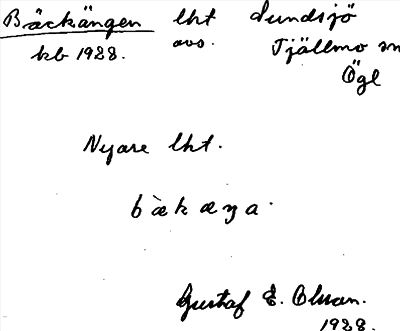 Bäckängen lht Sundsjö
kb 1928. avs. Tjällmo sn
Ögl
Nyare lht.
bæ̀kæŋa.
Gustaf E. Olsson.
1928.